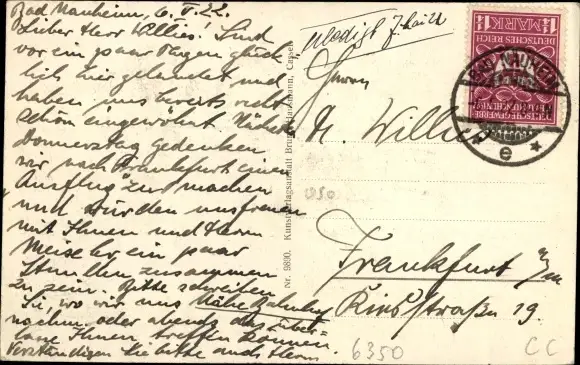 Bad Nauheim, 6. V. 22.
Lieber Herr Willies! Sind
vor ein paar Tagen glück
lich hier gelandet und
haben uns bereits recht
schön eingewöhnt. Nächsten
Donnerstag gedenken
wir nach Frankfurt einen
Ausflug zu machen
und würden uns freuen
mit Ihnen und Herrn
Meise ein paar
Stunden zusammen
zu sein. Bitte schreiben
Sie, wo wir uns Nähe Bahnhof
nachm. oder abends
Ihnen treffen können.
Verständigen Sie bitte auch Herrn
Nr. 9890. Kunstverlagsanstalt Bruno Hansmann, Cassel
erledigt
Herrn
Willies
Frankfurt a/m
straße 19.
1¼ MARK 1¼
DEUTSCHES REICH
DEUTSCHE GEWERBESCHAU MÜNCHEN
BAD NAUHEIM
* e *
050
6350
CC